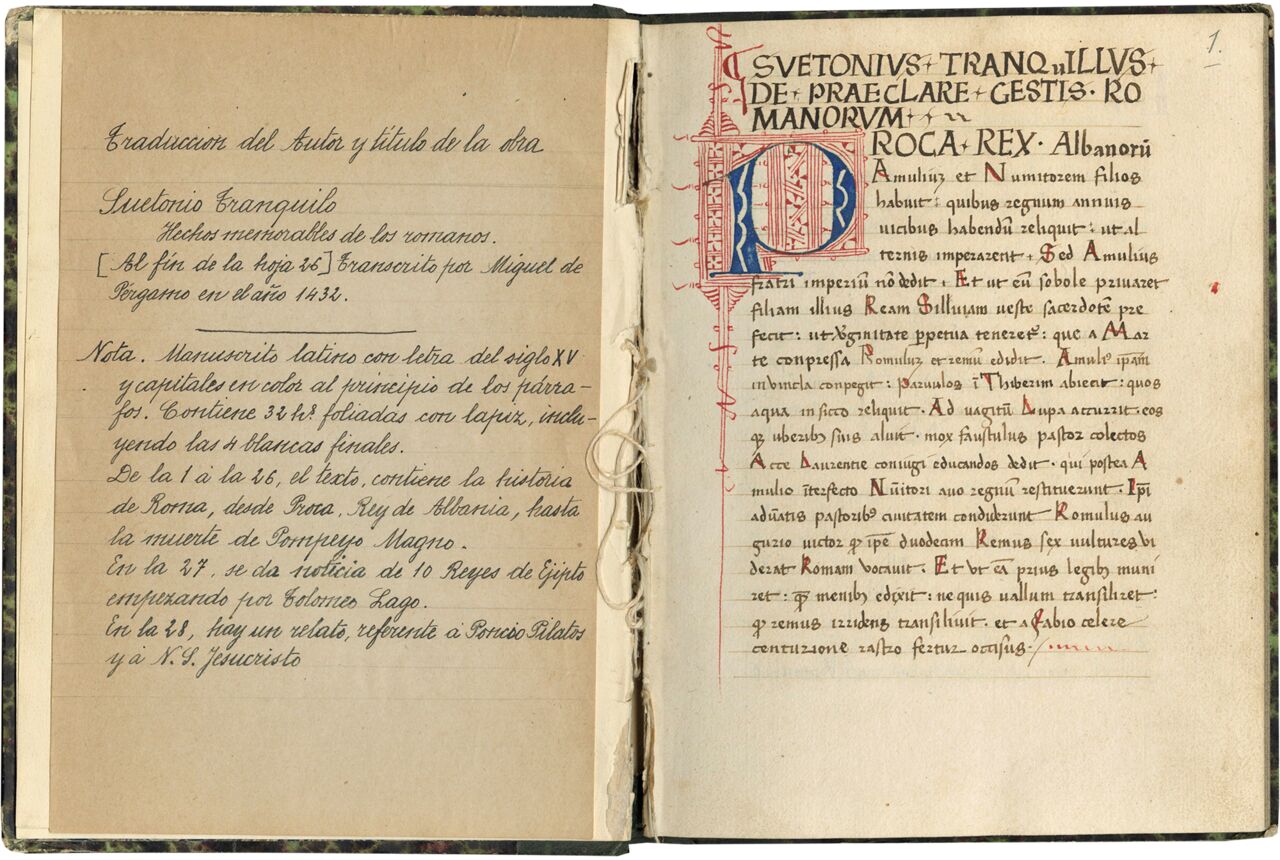 Traduccion del Autor y título de la obra
Suetonio Tranquilo
Hechos memorables de los romanos.
[Al fin de la hoja 26] Transcrito por Miguel de
Pérgamo en el año 1432.
Nota. Manuscrito latino con letra del siglo XV
y capitales en color al principio de los párra-
fos. Contiene 32 hs. foliadas con lapiz, inclu-
yendo las 4 blancas finales.
De la 1 á la 26, el texto, contiene la historia
de Roma, desde Proca, Rey de Albania, hasta
la muerte de Pompeyo Magno.
En la 27, se da noticia de 10 Reyes de Ejipto
empezando por Tolomeo Lago.
En la 28, hay un relato, referente á Poncio Pilatos
y á N. S. Jesucristo
1.
SVETONIVS + TRANQuILLVS +
DE + PRAECLARE + GESTIS · RO
MANORVM +
PROCA + REX · Albanorū
Amuliuʒ et Numitorem filios
habuit : quibus regnum annuis
uicibus habendū reliquit : ut al
ternis imperarent + Sed Amulius
fratri imperiū nō dedit · Et ut eū sobole priuaret
filiam illius Ream Silluiam ueste sacerdotē pre
fecit : ut uginitate ꝑpetua teneret : que a Mar
te conpressa Romuluʒ et remū edidit · Amuli ipam
in uincla conpegit : paruulos ī Thiberim abiecit : quos
aqua in sicco reliquit · Ad uagitū Lupa accurrit · eos
qʒ uberibʒ suis aluit · mox faustulus pastor colectos
Acce Laurentie coniugi educandos dedit · qui postea A
mulio īterfecto Nūitori auo regnū restituerunt · Ipi
aduatis pastoribʒ ciuitatem condiderunt Romulus au
gurio uictor qʒ ipe duodecim Remus sex uultures ui
derat Romam uocauit · Et ut eā prius legibʒ muni
ret : menibʒ edixit : ne quis uallum transiliret :
qʒ remus irridens transiliuit · et a Fabio celere
centurione rastro fertur occisus ·